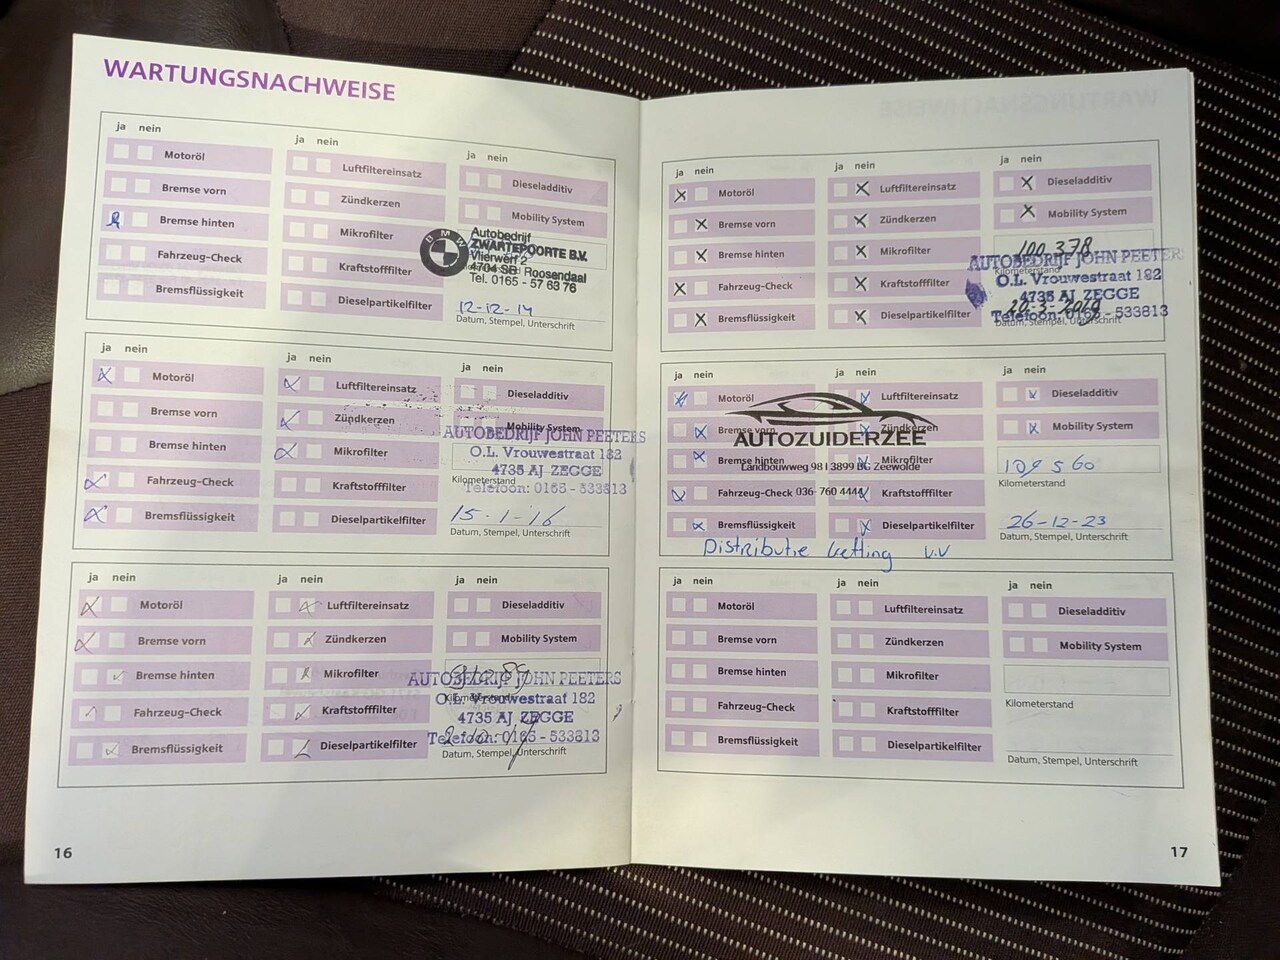 WARTUNGSNACHWEISE
ja nein
Motoröl
Bremse vorn
Bremse hinten
Fahrzeug-Check
Bremsflüssigkeit
ja nein
Luftfiltereinsatz
Zündkerzen
Mikrofilter
Kraftstofffilter
Dieselpartikelfilter
ja nein
Dieseladditiv
Mobility System
BMW
Autobedrijf
ZWARTEPOORTE B.V.
Vlierwerf 2
4704 SB Roosendaal
Tel. 0165 - 57 63 76
12-12-14
Datum, Stempel, Unterschrift
ja nein
Motoröl
Bremse vorn
Bremse hinten
Fahrzeug-Check
Bremsflüssigkeit
ja nein
Luftfiltereinsatz
Zündkerzen
Mikrofilter
Kraftstofffilter
Dieselpartikelfilter
ja nein
Dieseladditiv
Mobility System
AUTOBEDRIJF JOHN PEETERS
O.L. Vrouwestraat 182
4735 AJ ZEGGE
Kilometerstand
Telefoon: 0165 - 533813
15-1-16
Datum, Stempel, Unterschrift
ja nein
Motoröl
Bremse vorn
Bremse hinten
Fahrzeug-Check
Bremsflüssigkeit
ja nein
Luftfiltereinsatz
Zündkerzen
Mikrofilter
Kraftstofffilter
Dieselpartikelfilter
ja nein
Dieseladditiv
Mobility System
AUTOBEDRIJF JOHN PEETERS
Kilometerstand
O.L. Vrouwestraat 182
4735 AJ ZEGGE
Telefoon: 0165 - 533813
Datum, Stempel, Unterschrift
16
ja nein
Motoröl
Bremse vorn
Bremse hinten
Fahrzeug-Check
Bremsflüssigkeit
ja nein
Luftfiltereinsatz
Zündkerzen
Mikrofilter
Kraftstofffilter
Dieselpartikelfilter
ja nein
Dieseladditiv
Mobility System
100.378
AUTOBEDRIJF JOHN PEETERS
Kilometerstand
O.L. Vrouwestraat 182
4735 AJ ZEGGE
Telefoon: 0165 - 533813
Datum, Stempel, Unterschrift
ja nein
Motoröl
Bremse vorn
Bremse hinten
Fahrzeug-Check
Bremsflüssigkeit
ja nein
Luftfiltereinsatz
Zündkerzen
Mikrofilter
Kraftstofffilter
Dieselpartikelfilter
AUTOZUIDERZEE
Landbouwweg 98 | 3899 BG Zeewolde
036- 760 4444
ja nein
Dieseladditiv
Mobility System
109560
Kilometerstand
26-12-23
Datum, Stempel, Unterschrift
Distributie ketting v.v
ja nein
Motoröl
Bremse vorn
Bremse hinten
Fahrzeug-Check
Bremsflüssigkeit
ja nein
Luftfiltereinsatz
Zündkerzen
Mikrofilter
Kraftstofffilter
Dieselpartikelfilter
ja nein
Dieseladditiv
Mobility System
Kilometerstand
Datum, Stempel, Unterschrift
17